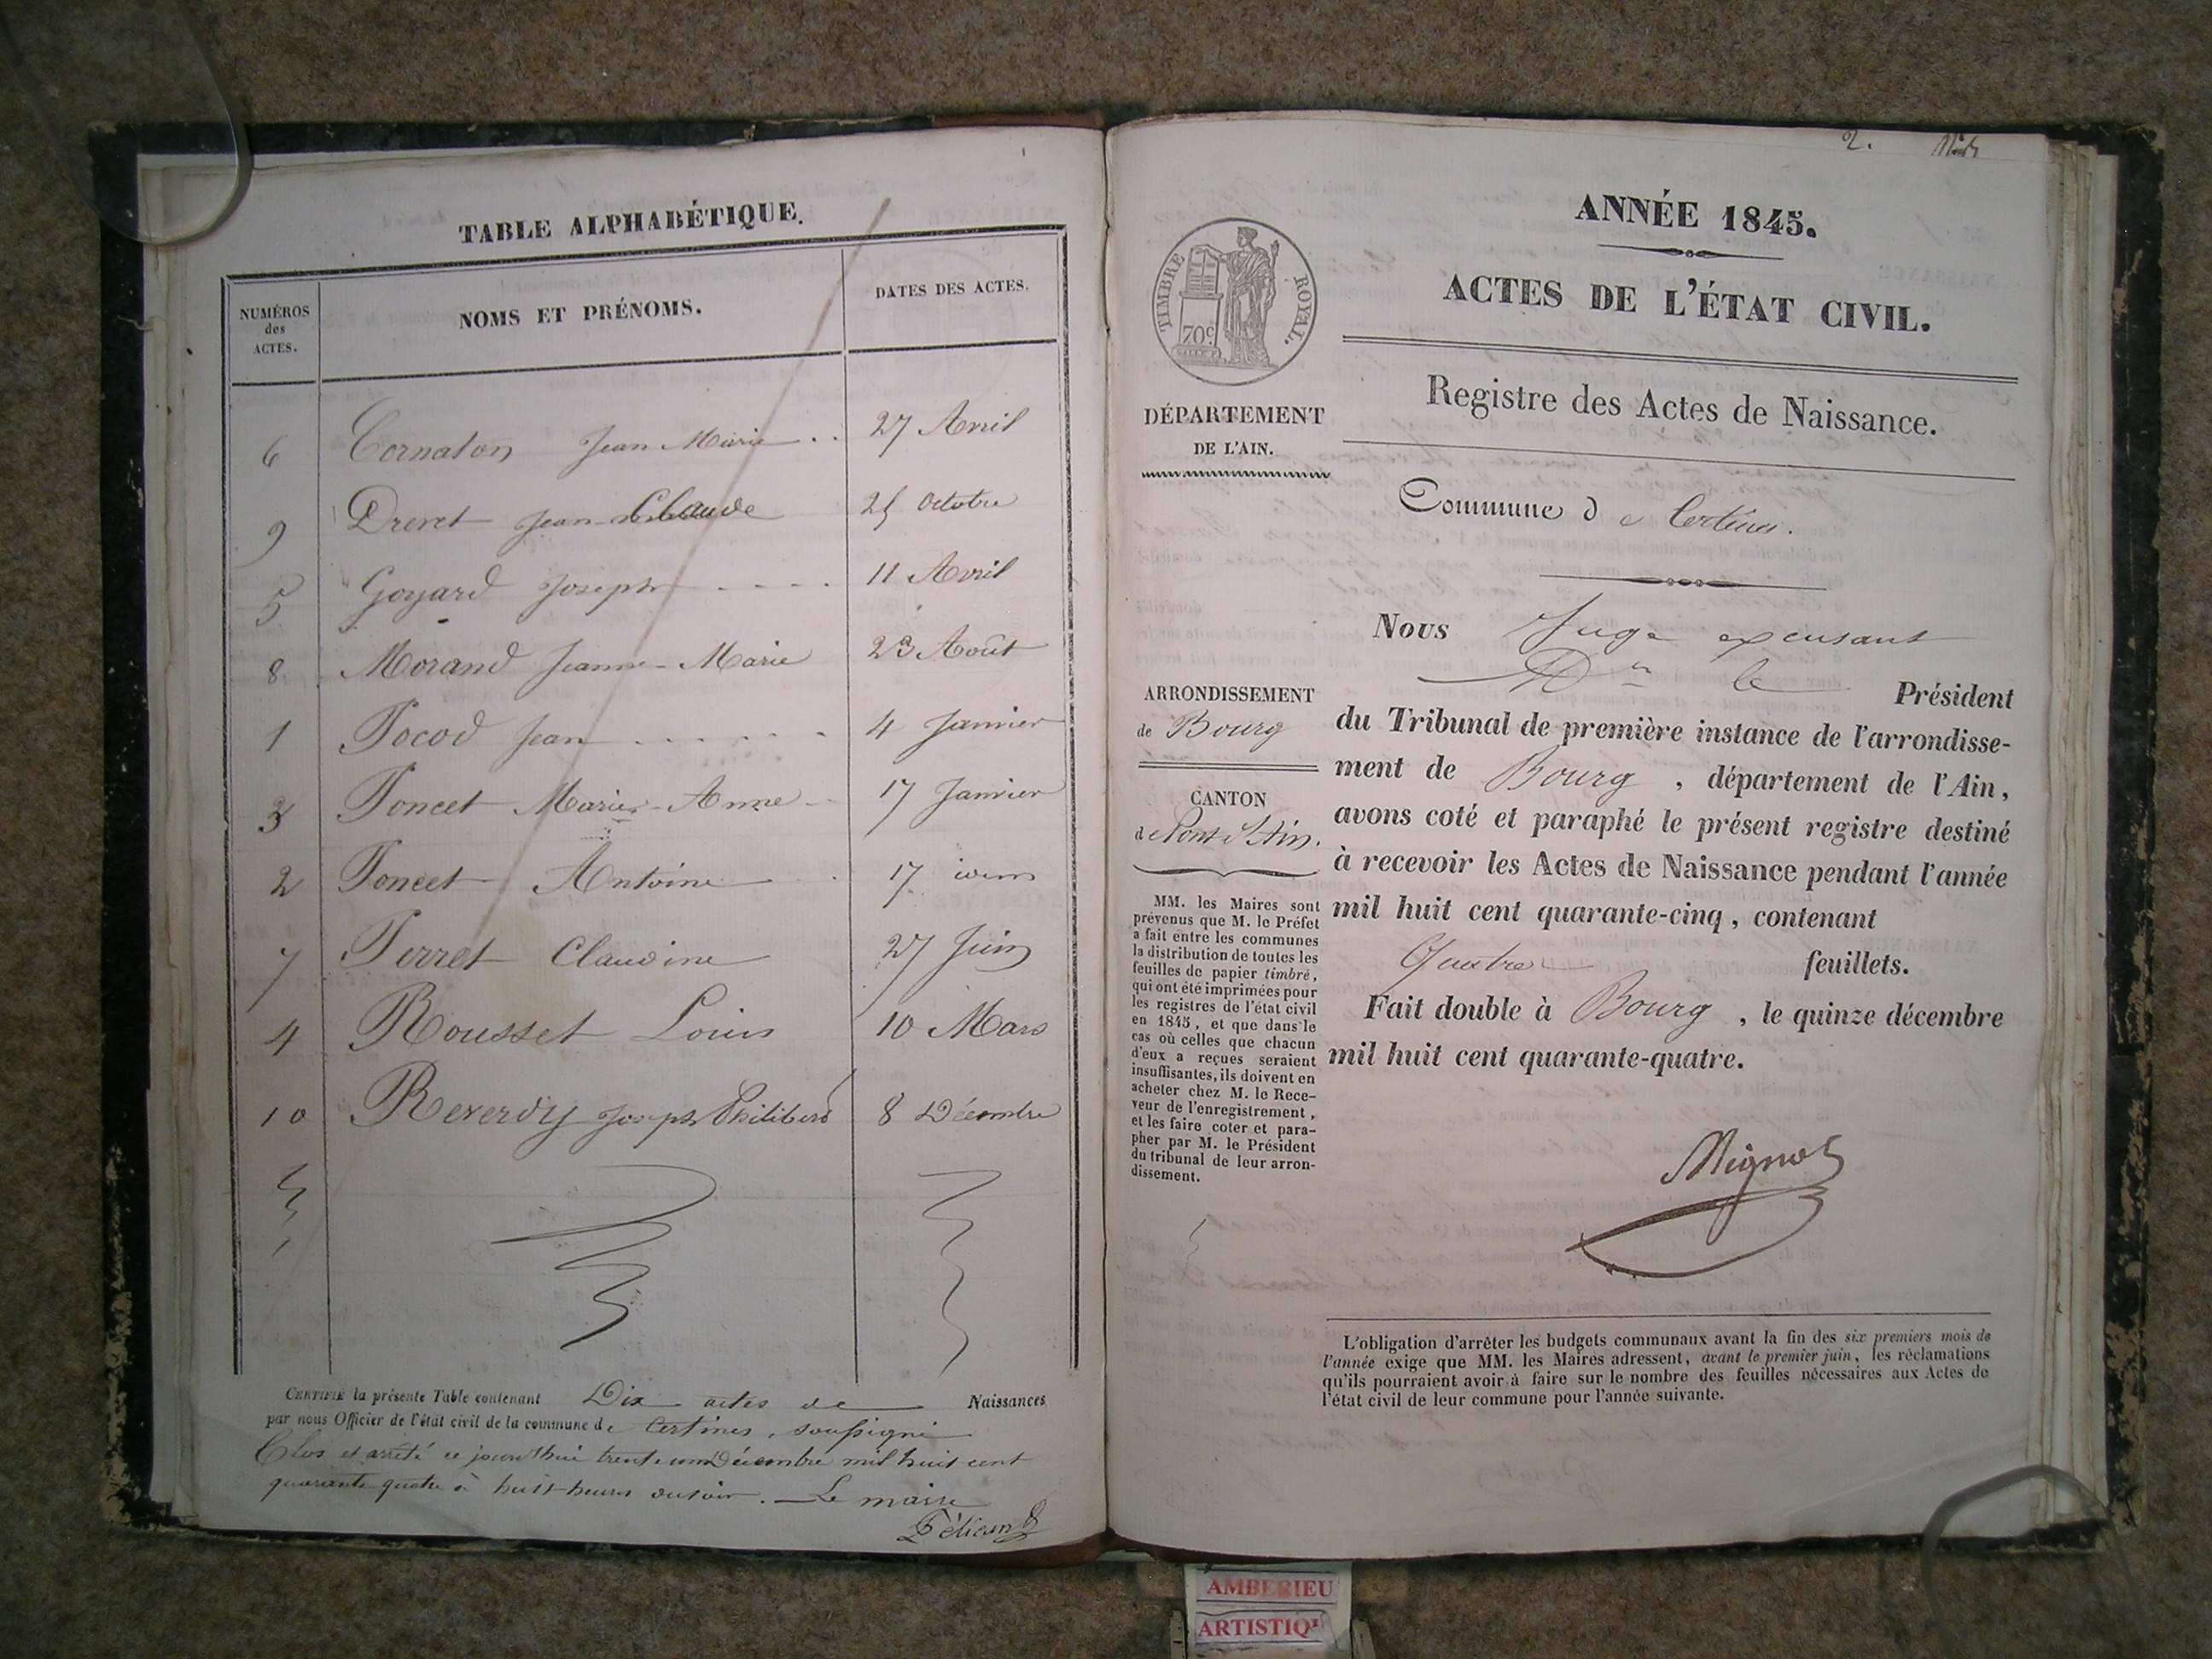 TABLE ALPHABÉTIQUE.
NUMÉROS
des
ACTES.
NOMS ET PRÉNOMS.
DATES DES ACTES.
6 Cornaton Jean Marie 27 Avril
9 Drevet Jean Claude 25 octobre
5 Goyard Joseph 11 Avril
8 Morand Jeanne-Marie 23 Août
1 Pocod Jean 4 Janvier
3 Poncet Marie-Anne 17 Janvier
2 Poncet Antoine 17 idem
7 Perret Claudine 27 Juin
4 Rousset Louis 10 Mars
10 Reverdy Joseph Philibert 8 Décembre
CERTIFIÉ la présente Table contenant Dix actes de Naissances
par nous Officier de l'état civil de la commune de Certines, soussigné
Clos et arrêté ce jourd'hui trente un Décembre mil huit cent
quarante quatre à huit heures du soir. Le maire
2.
ANNÉE 1845.
ACTES DE L'ÉTAT CIVIL.
TIMBRE ROYAL.
70c
DÉPARTEMENT
DE L'AIN.
Registre des Actes de Naissance.
Commune de Certines.
Nous Juge excusant
Mr le Président
du Tribunal de première instance de l'arrondisse-
ment de Bourg, département de l'Ain,
avons coté et paraphé le présent registre destiné
à recevoir les Actes de Naissance pendant l'année
mil huit cent quarante-cinq, contenant
Quatre feuillets.
Fait double à Bourg, le quinze décembre
mil huit cent quarante-quatre.
ARRONDISSEMENT
de Bourg
CANTON
de Pont d'Ain.
MM. les Maires sont
prévenus que M. le Préfet
a fait entre les communes
la distribution de toutes les
feuilles de papier timbré,
qui ont été imprimées pour
les registres de l'état civil
en 1845, et que dans le
cas où celles que chacun
d'eux a reçues seraient
insuffisantes, ils doivent en
acheter chez M. le Rece-
veur de l'enregistrement,
et les faire coter et para-
pher par M. le Président
du tribunal de leur arron-
dissement.
Mignot
L'obligation d'arrêter les budgets communaux avant la fin des six premiers mois de
l'année exige que MM. les Maires adressent, avant le premier juin, les réclamations
qu'ils pourraient avoir à faire sur le nombre des feuilles nécessaires aux Actes de
l'état civil de leur commune pour l'année suivante.
AMBERIEU
ARTISTIQ